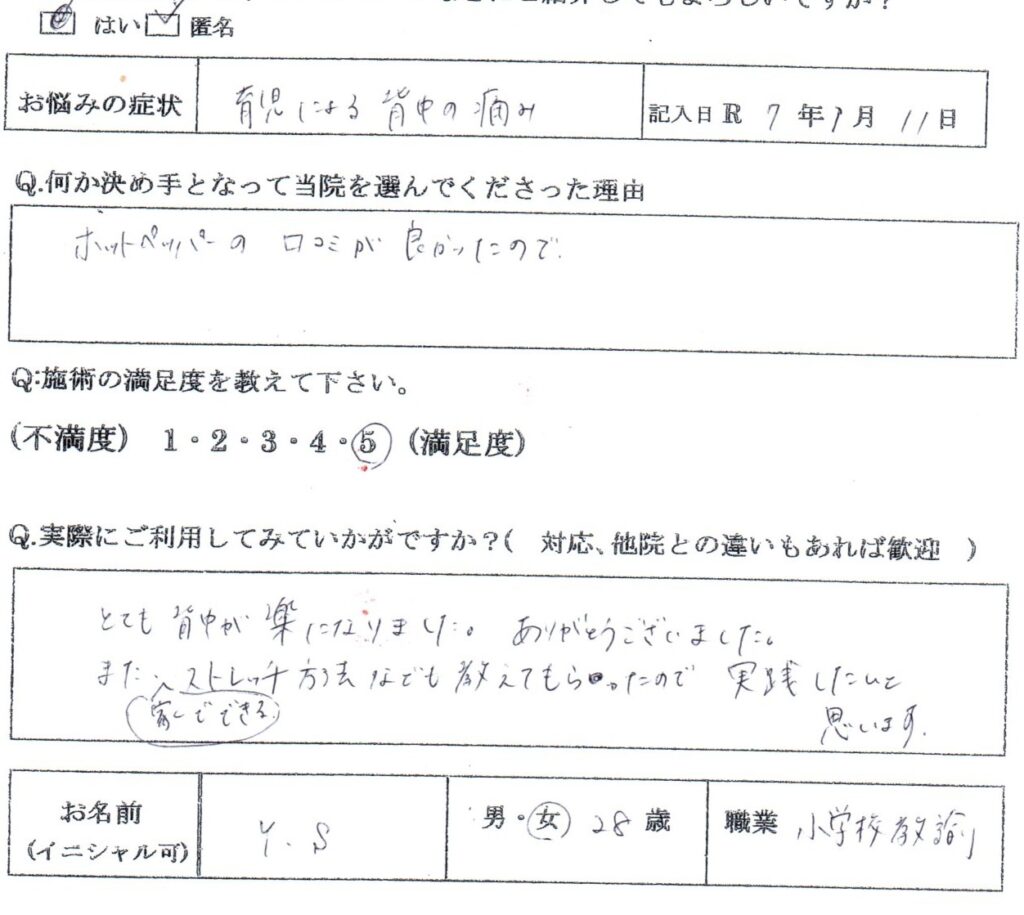 ご紹介してもよろしいですか?
はい 匿名
お悩みの症状 育児による背中の痛み 記入日 R 7 年 7 月 11 日
Q.何か決め手となって当院を選んでくださった理由
ホットペッパーの 口コミが 良かったので
Q:施術の満足度を教えて下さい。
(不満度) 1・2・3・4・5 (満足度)
Q.実際にご利用してみていかがですか?( 対応、他院との違いもあれば歓迎 )
とても 背中が 楽になりました。 ありがとうございました。
また、ストレッチ方法なども 教えてもらったので 実践したいと
家でできる
思います。
お名前 Y.S 男・女 28 歳 職業 小学校教諭
(イニシャル可)